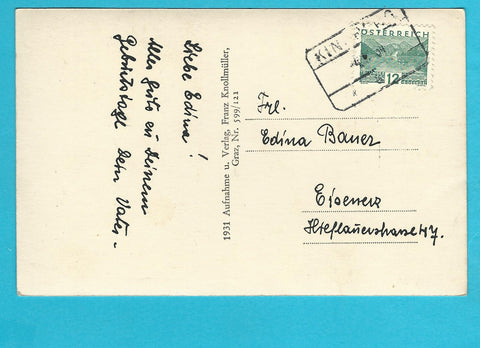 Liebe Edina!
Alles Gute zu Deinem
Geburtstage Dein Vater.
1931 Aufnahme u. Verlag, Franz Knollmüller,
Graz, Nr. 599/121
ÖSTERREICH
12
KIN
Frl.
Edina Bauer
Eisenerz
Hieflauerstrasse 47.